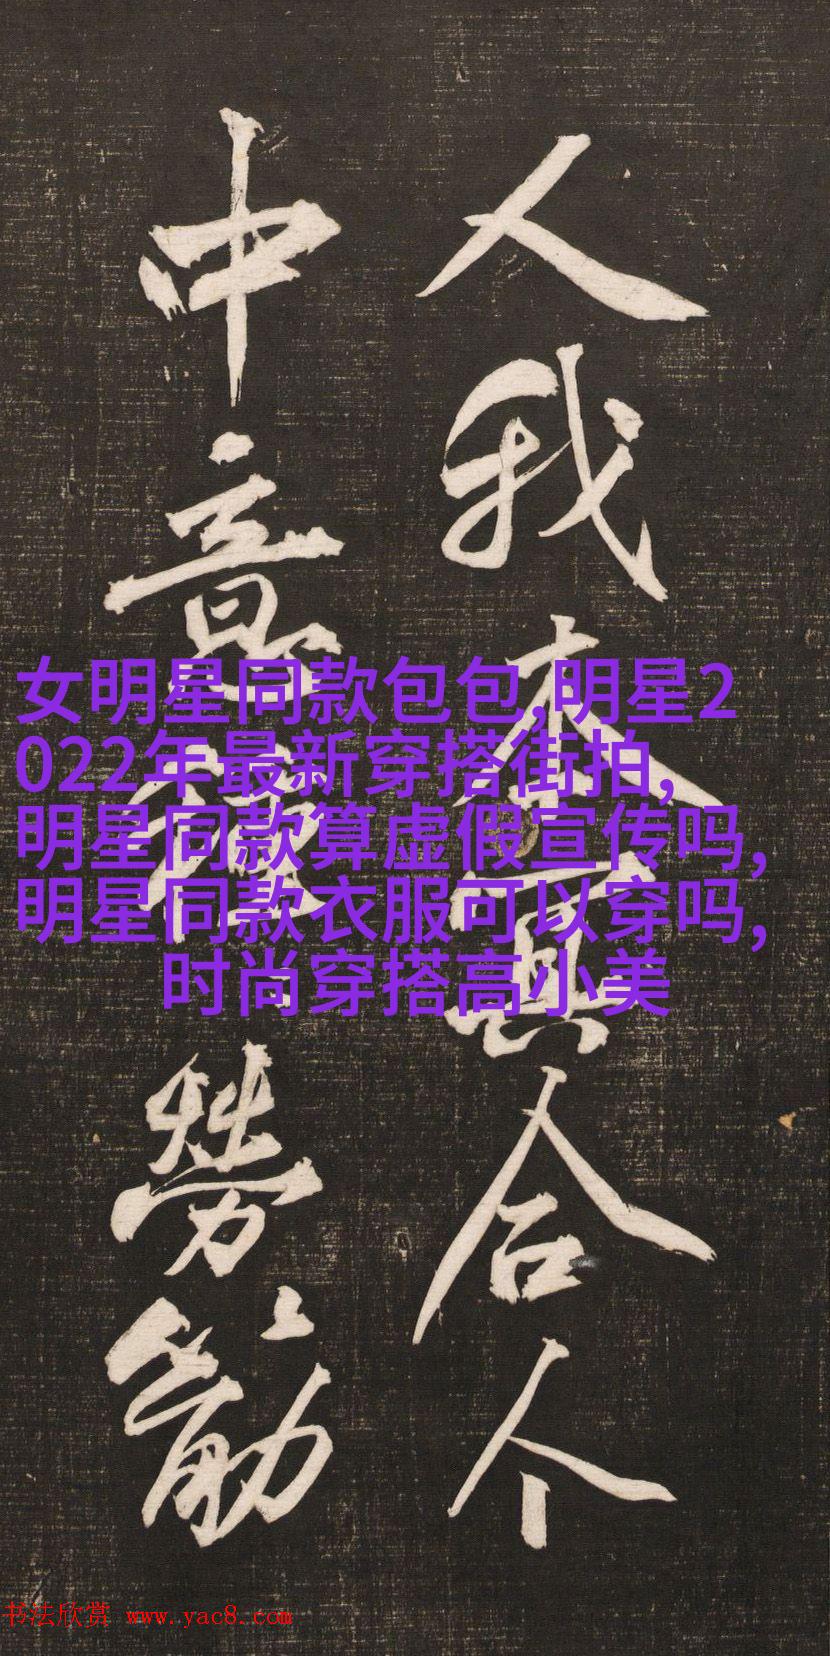 人我本真合个
中意勞筋
女明星同款包包,明星2
022年最新穿搭街拍,
明星同款算虚假宣传吗,
明星同款衣服可以穿吗,
时尚穿搭高小美
书法欣赏 www.yac8.com